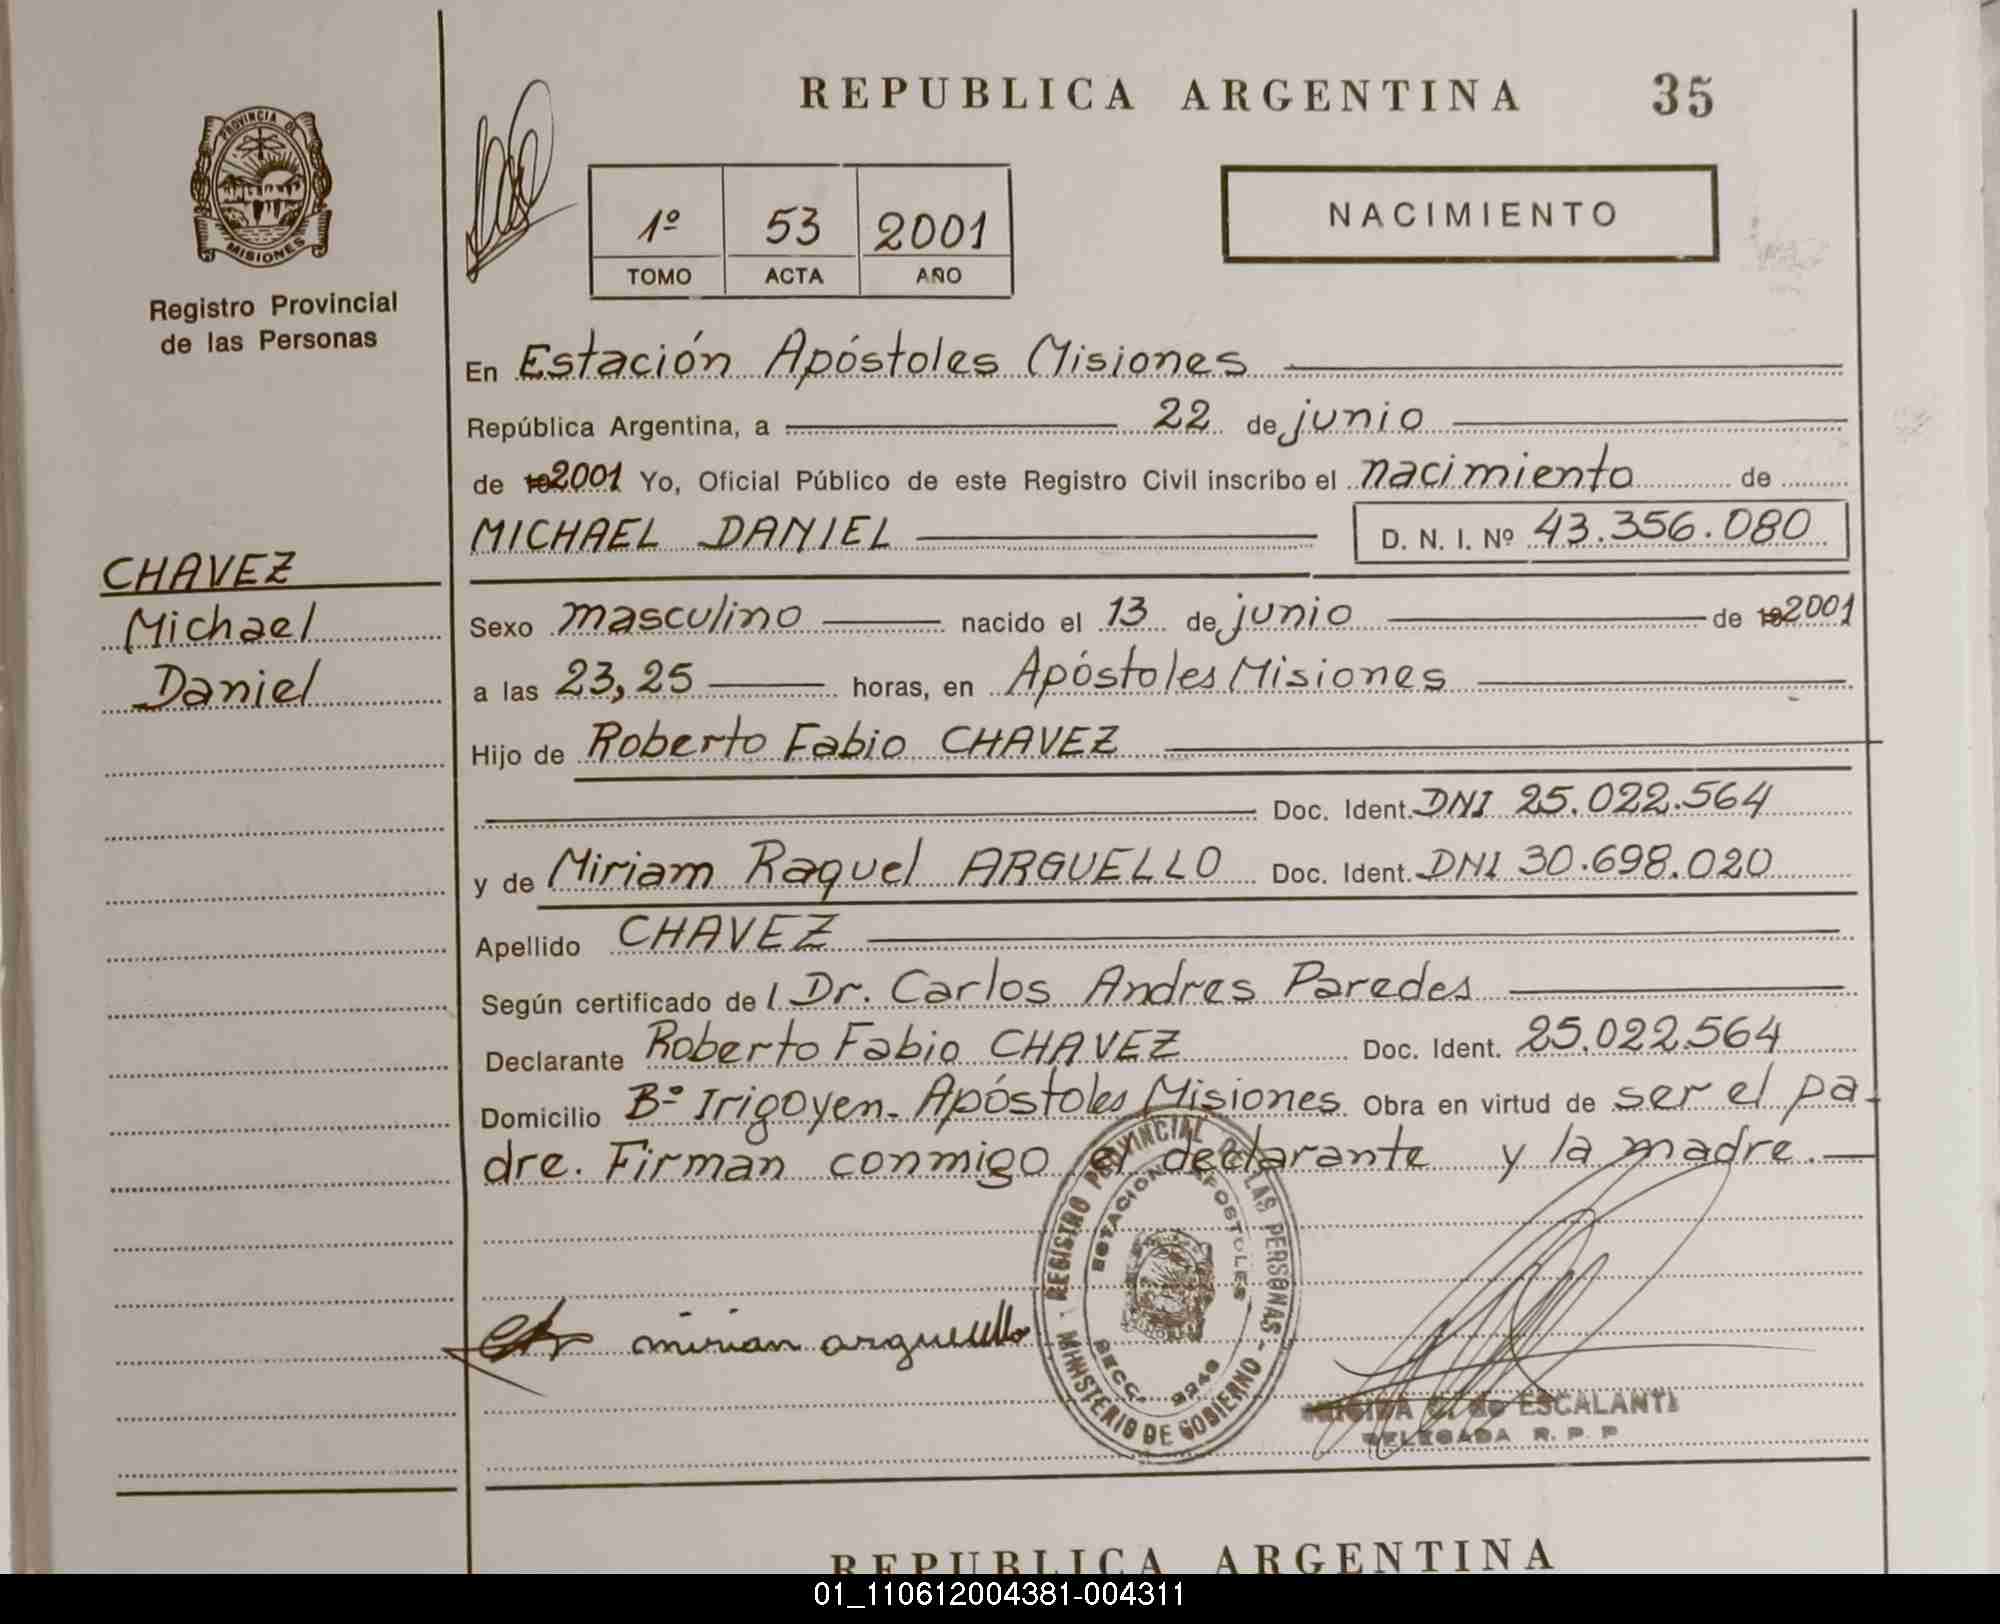 REPUBLICA ARGENTINA 35
PROVINCIA DE
MISIONES
Registro Provincial
de las Personas
1º 53 2001
TOMO ACTA AÑO
NACIMIENTO
En Estación Apóstoles Misiones
República Argentina, a 22 de junio
de 19 2001 Yo, Oficial Público de este Registro Civil inscribo el nacimiento de
MICHAEL DANIEL D. N. I. Nº 43.356.080
CHAVEZ
Michael
Daniel
Sexo masculino nacido el 13 de junio de 19 2001
a las 23,25 horas, en Apóstoles Misiones
Hijo de Roberto Fabio CHAVEZ
Doc. Ident. DNI 25.022.564
y de Miriam Raquel ARGUELLO Doc. Ident. DNI 30.698.020
Apellido CHAVEZ
Según certificado de l Dr. Carlos Andres Paredes
Declarante Roberto Fabio CHAVEZ Doc. Ident. 25.022.564
Domicilio Bº Irigoyen. Apóstoles Misiones Obra en virtud de ser el pa-
dre. Firman conmigo el declarante y la madre.
REGISTRO PROVINCIAL DE LAS PERSONAS - MINISTERIO DE GOBIERNO -
ESTACION APOSTOLES
SECC.
mirian arguello
C. de ESCALANTE
DELEGADA R. P. P
REPUBLICA ARGENTINA
01_110612004381-004311